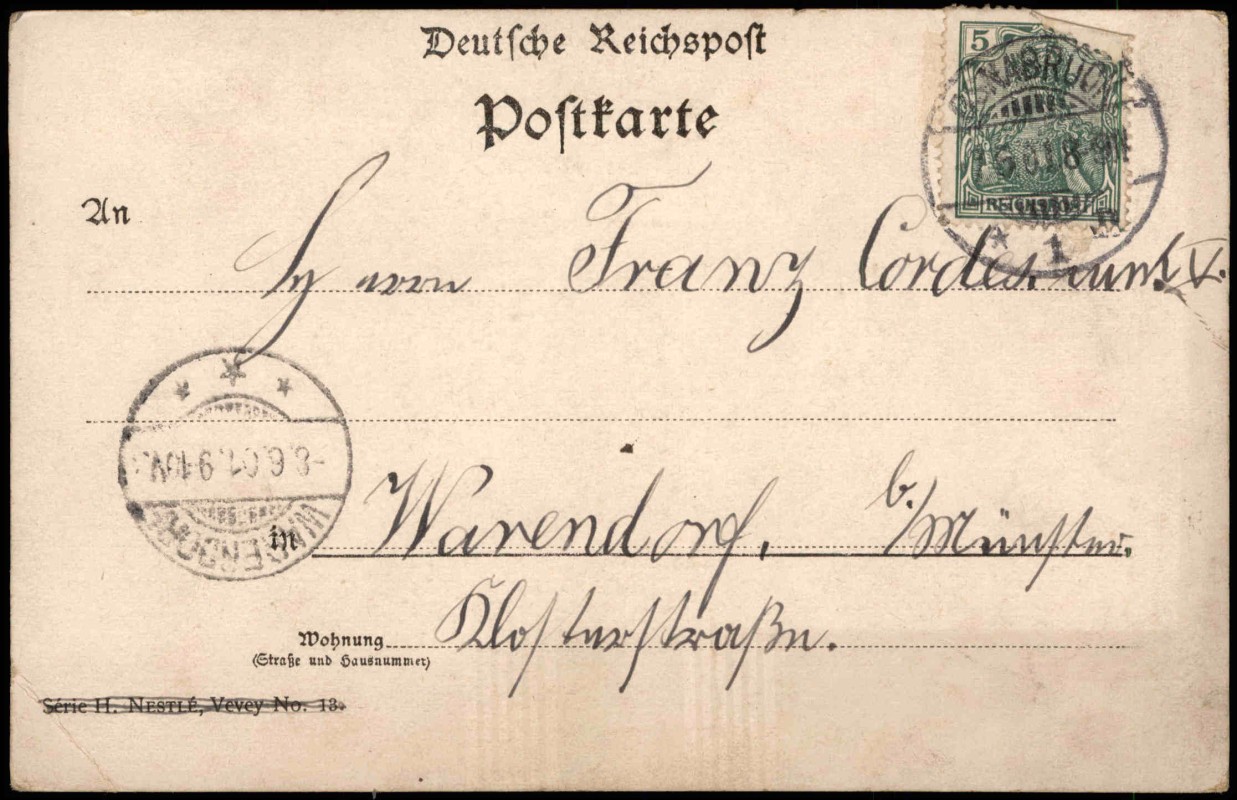 Deutsche Reichspost
Postkarte
5
REICHSPOST
OSNABRÜCK
8-9N
* 1
An
Herrn Franz Cordesmunk V.
8.6.01. 9-10V.
WARENDORF
in Warendorf, b./Münster.
Klosterstraße.
Wohnung
(Straße und Hausnummer)
Série H. NESTLÉ, Vevey No. 13.